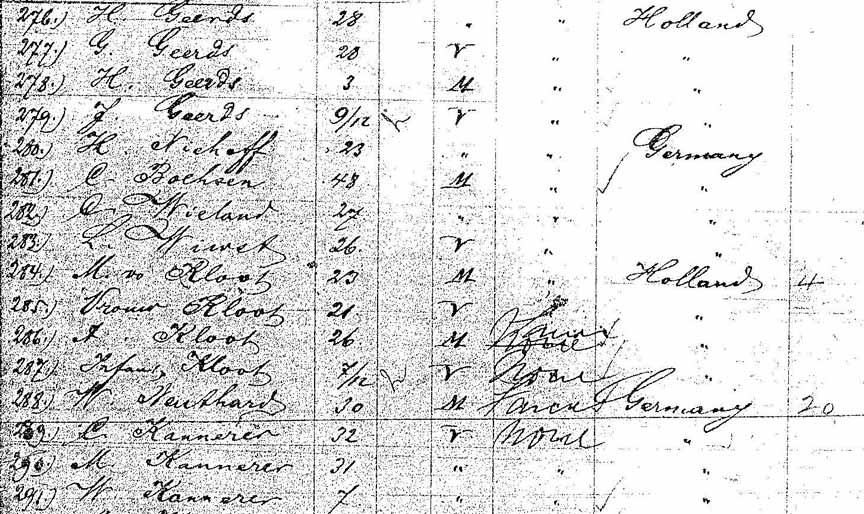 276.) H. Geerds 28 " " Holland
277.) G. Geerds 28 V " "
278.) H. Geerds 3 M " "
279.) J. Geerds 9/12 V " "
280.) H. Niehoff 23 " " Germany
281.) C. Boehsen 48 M " "
282.) C. Wieland 27 " " "
283.) L. Wurst 26 V " "
284.) M. v Kloot 23 M " Holland 4
285.) Vrouw Kloot 21 V " "
286.) A. Kloot 26 M "
287.) Infant Kloot 7/12 V None "
288.) W. Neuthard 30 M Germany 20
289.) L. Kannerer 32 V None "
290.) M. Kannerer 31 " " "
291.) W. Kannerer 7 " " "